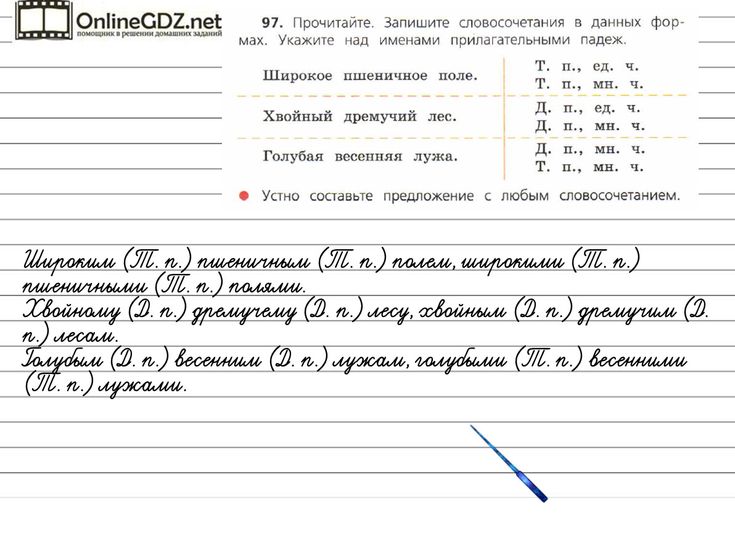 OnlineGDZ.net
помощник в решении домашних заданий
97. Прочитайте. Запишите словосочетания в данных фор-
мах. Укажите над именами прилагательными падеж.
Широкое пшеничное поле.
Т. п., ед. ч.
Т. п., мн. ч.
Хвойный дремучий лес.
Д. п., ед. ч.
Д. п., мн. ч.
Голубая весенняя лужа.
Д. п., мн. ч.
Т. п., мн. ч.
● Устно составьте предложение с любым словосочетанием.
Широким (Т. п.) пшеничным (Т. п.) полем, широкими (Т. п.)
пшеничными (Т. п.) полями.
Хвойному (Д. п.) дремучему (Д. п.) лесу, хвойным (Д. п.) дремучим (Д.
п.) лесам.
Голубым (Д. п.) весенним (Д. п.) лужам, голубыми (Т. п.) весенними
(Т. п.) лужами.